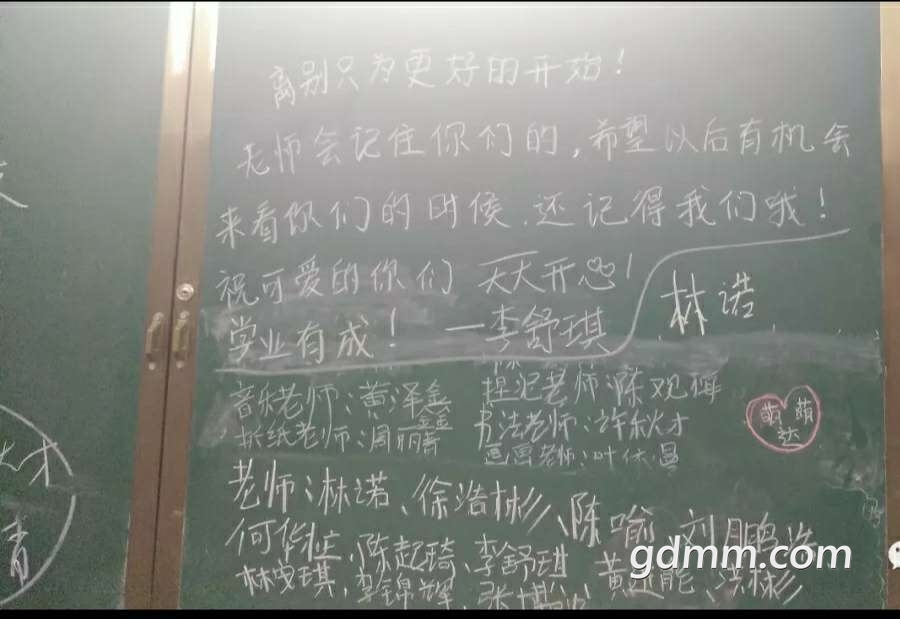 离别只为更好的开始！
老师会记住你们的，希望以后有机会
来看你们的时候，还记得我们哦！
祝可爱的你们 天天开心！
学业有成！ —李舒琪
林诺
音乐老师：黄泽鑫
趣记老师：陈观
折纸老师：周丽菁
书法老师：许秋才
画画老师：叶
萌萌达
老师：林诺、徐浩彬、陈喻、刘
何华、陈起琦、李舒琪
林雯琪、李锦辉、张博 黄 能、洪彬
才
青
gdmm.com